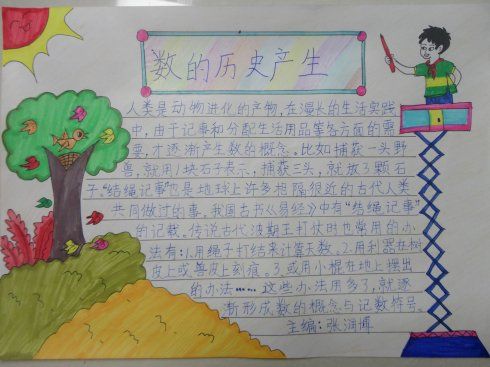 数的历史产生
人类是动物进化的产物,在漫长的生活实践
中,由于记事和分配生活用品等各方面的需
要,才逐渐产生数的概念。比如捕获一头野
兽,就用1块石子表示,捕获三头,就放3颗石
子。"结绳记事"也是地球上许多相隔很近的古代人类
共同做过的事。我国古书《易经》中有"结绳记事"
的记载。传说古代波期王打仗时也常用的办
法有:1.用绳子打结来计算天数。2.用利器在树
皮上或兽皮上刻痕。3.或用小棍在地上摆出
的办法……这些办法用多了,就逐
渐形成数的概念与记数符号。
主编:张润博